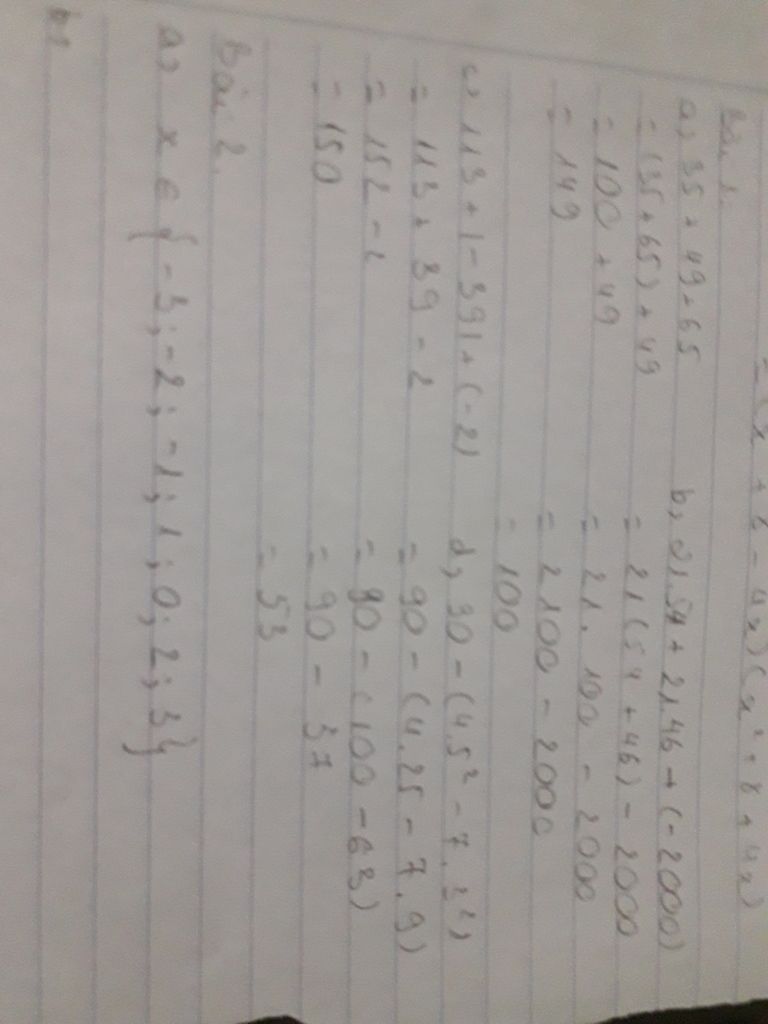 = (x + 8 - 4x)(x² + 8 + 4x)
Bài 1.
a, 35 + 49 + 65
= (35 + 65) + 49
= 100 + 49
= 149
b, 21.54 + 21.46 + (-2000)
= 21(54 + 46) - 2000
= 21. 100 - 2000
= 2100 - 2000
= 100
c, 113 + |-39| + (-2)
= 113 + 39 - 2
= 152 - 2
= 150
d, 90 - (4.5² - 7.3²)
= 90 - (4.25 - 7.9)
= 90 - (100 - 63)
= 90 - 37
= 53
Bài 2.
a, x ∈ {-3; -2; -1; 1; 0; 2; 3}
b,